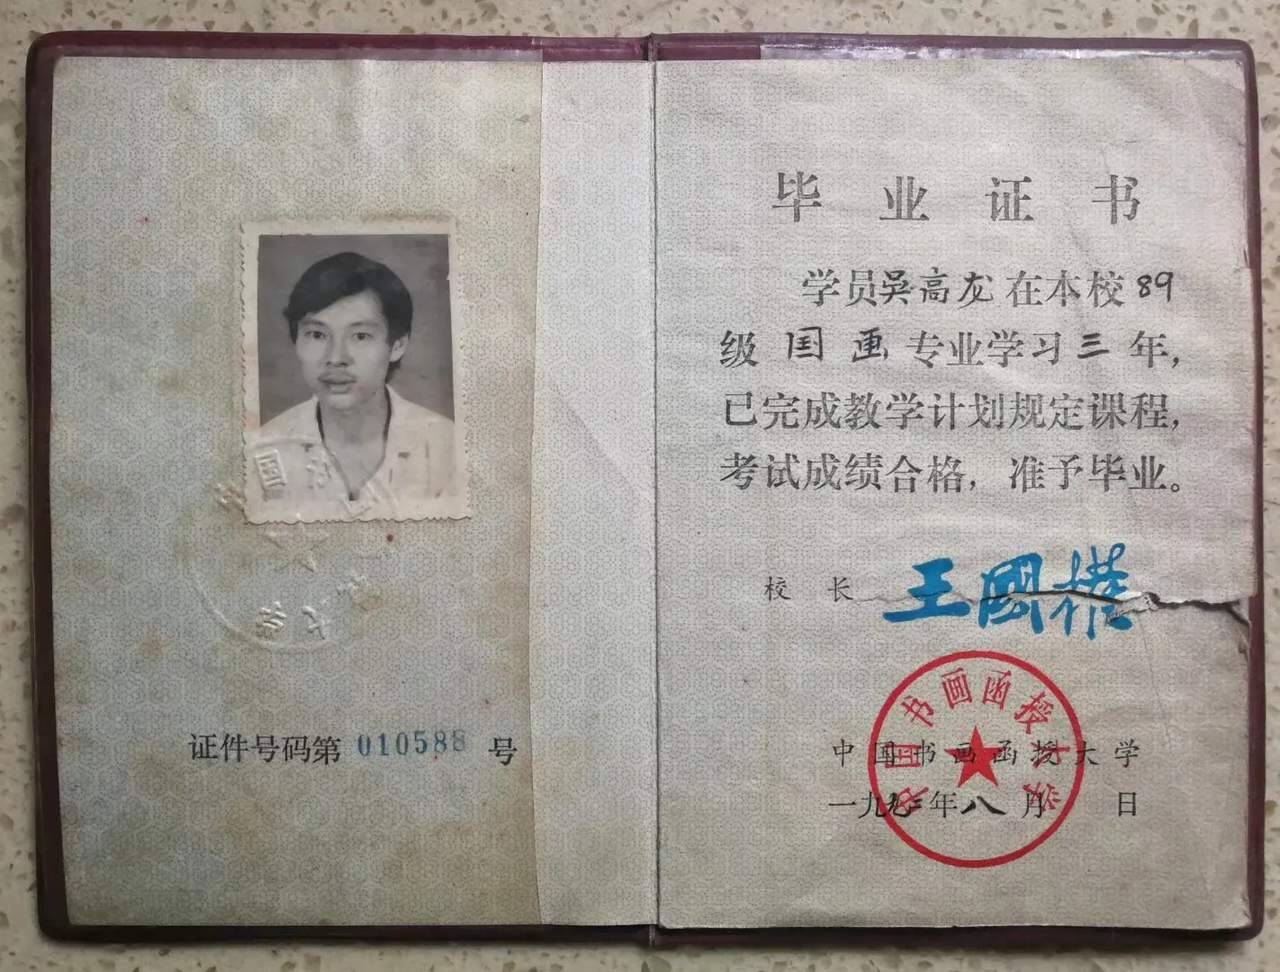 证件号码第 010588 号
毕业证书
学员吴高龙在本校89
级国画专业学习三年,
已完成教学计划规定课程,
考试成绩合格,准予毕业。
校长 王國權
中国书画函授大学
中国书画函授大学
一九九二年八月 日